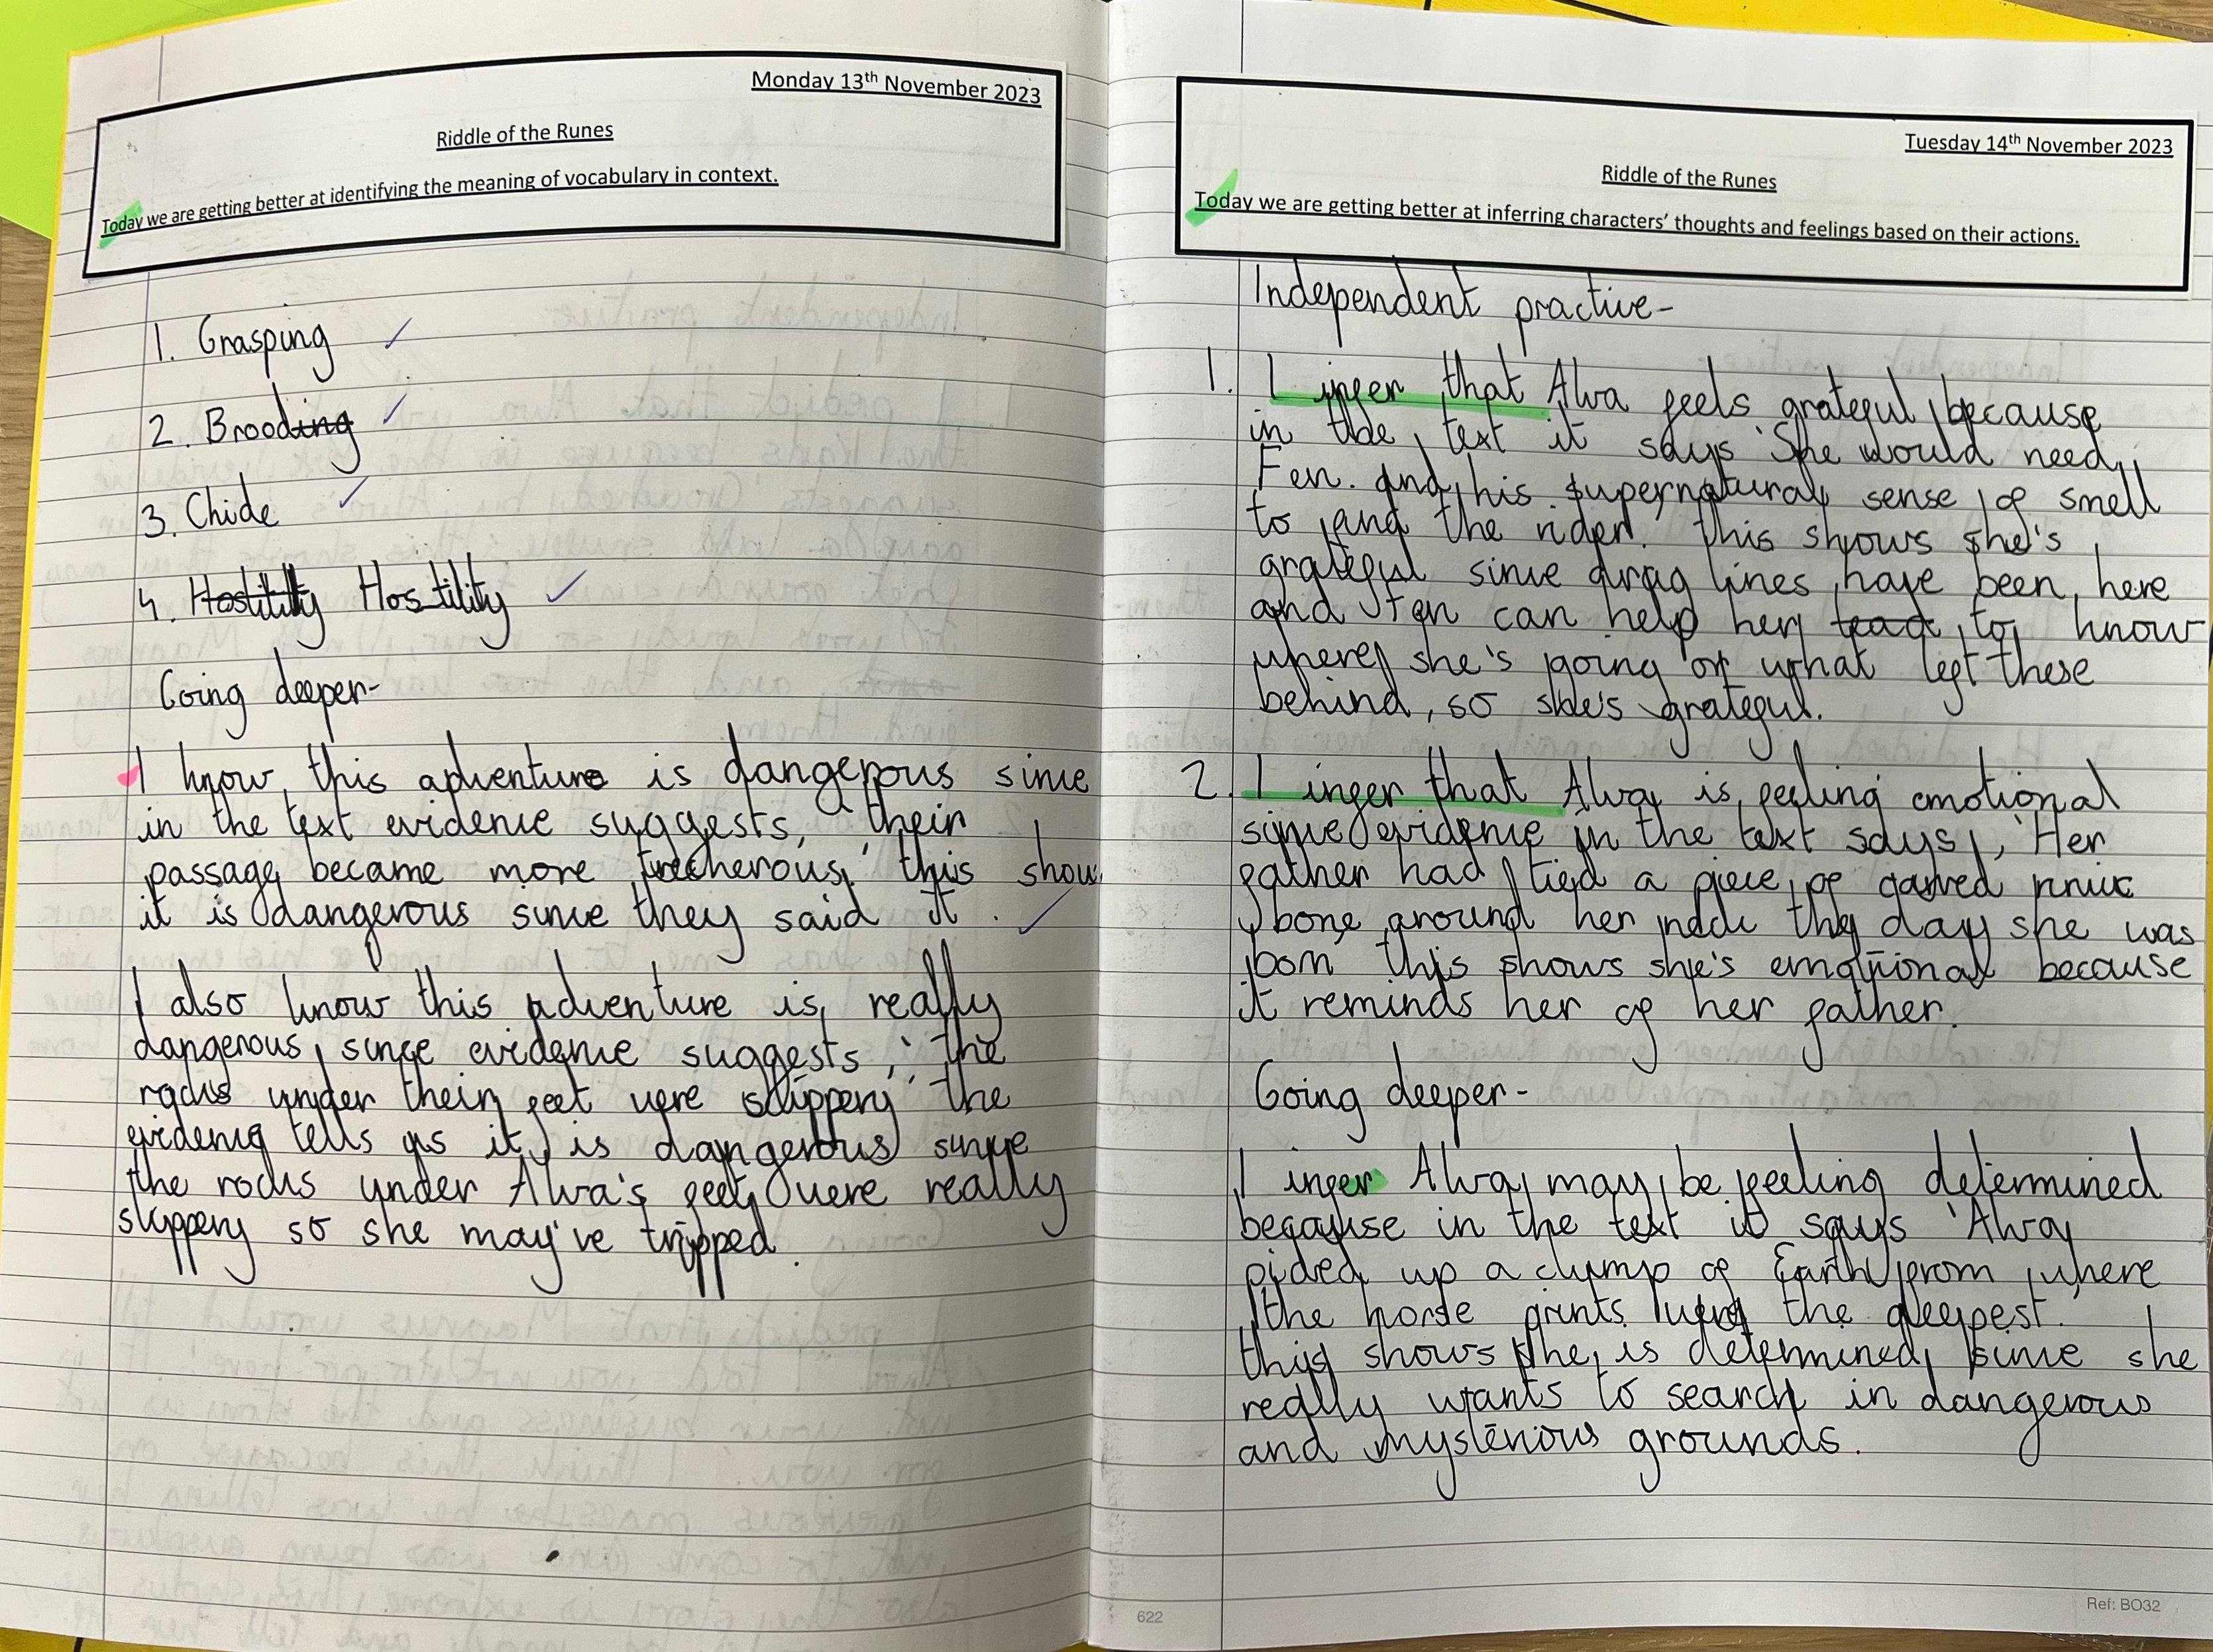 Monday 13th November 2023
Riddle of the Runes
Today we are getting better at identifying the meaning of vocabulary in context.
1. Grasping
2. Brooding
3. Chide
4. Hostility Hostility
Going deeper-
I know this adventure is dangerous since
in the text evidence suggests, 'their
passage became more trecherous,' this show
it is dangerous since they said it.
I also know this adventure is really
dangerous, since evidence suggests, 'the
rocks under their feet were slippery' the
evidence tells us it is dangerous since
the rocks under Alva's feet were really
slippery so she may've tripped.
Tuesday 14th November 2023
Riddle of the Runes
Today we are getting better at inferring characters' thoughts and feelings based on their actions.
Independent practive-
1. I infer that Alva feels grateful, because
in the text it says 'She would need
Fen. and his supernatural sense of smell
to and the rider. This shows she's
grateful since drag lines have been here
and Fen can help her to know
where she's going or what left these
behind, so she's grateful.
2. I infer that Alva is feeling emotional
since evidence in the text says, 'Her
father had tied a piece of carved
bone around her neck the day she was
born this shows she's emotional because
it reminds her of her father.
Going deeper-
I infer Alva may be feeling determined
because in the text it says 'Alva
picked up a clump of Earth from where
the horse prints were the deepest.'
this shows she is determined, since she
really wants to search in dangerous
and mysterious grounds.
622
Ref: BO32